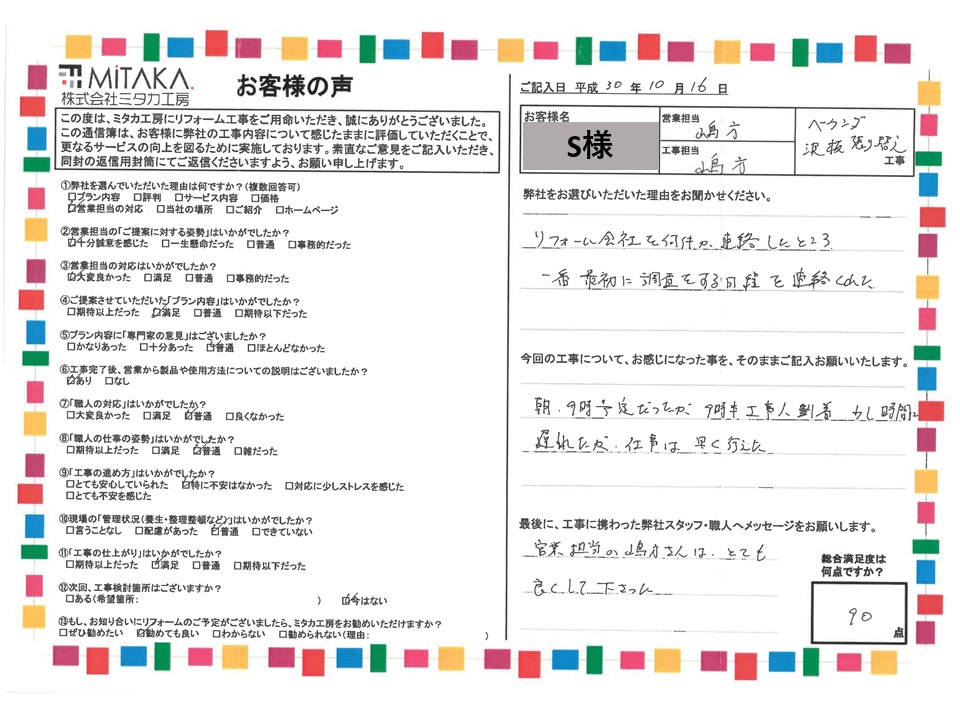 MiTAKA.
株式会社ミタカ工房
お客様の声
この度は、ミタカ工房にリフォーム工事をご用命いただき、誠にありがとうございました。
この通信簿は、お客様に弊社の工事内容について感じたままに評価していただくことで、
更なるサービスの向上を図るために実施しております。素直なご意見をご記入いただき、
同封の返信用封筒にてご返信くださいますよう、お願い申し上げます。
①弊社を選んでいただいた理由は何ですか？(複数回答可)
□プラン内容 □評判 □サービス内容 □価格
☑営業担当の対応 □当社の場所 □ご紹介 □ホームページ
②営業担当の「ご提案に対する姿勢」はいかがでしたか？
☑十分誠意を感じた □一生懸命だった □普通 □事務的だった
③営業担当の対応はいかがでしたか？
☑大変良かった □満足 □普通 □事務的だった
④ご提案させていただいた「プラン内容」はいかがでしたか？
□期待以上だった ☑満足 □普通 □期待以下だった
⑤プラン内容に「専門家の意見」はございましたか？
□かなりあった □十分あった ☑普通 □ほとんどなかった
⑥工事完了後、営業から製品や使用方法についての説明はございましたか？
☑あり □なし
⑦「職人の対応」はいかがでしたか？
□大変良かった □満足 ☑普通 □良くなかった
⑧「職人の仕事の姿勢」はいかがでしたか？
□期待以上だった □満足 ☑普通 □雑だった
⑨「工事の進め方」はいかがでしたか？
□とても安心していられた ☑特に不安はなかった □対応に少しストレスを感じた
□とても不安を感じた
⑩現場の「管理状況(養生・整理整頓など)」はいかがでしたか？
□言うことなし □配慮があった ☑普通 □できていない
⑪「工事の仕上がり」はいかがでしたか？
□期待以上だった ☑満足 □普通 □期待以下だった
⑫次回、工事検討箇所はございますか？
□ある(希望箇所: ) ☑今はない
⑬もし、お知り合いにリフォームのご予定がございましたら、ミタカ工房をお勧めいただけますか？
□ぜひ勧めたい ☑勧めても良い □わからない □勧められない(理由: )
ご記入日 平成 30 年 10 月 16 日
お客様名
S様
営業担当
嶋方
工事担当
嶋方
ベランダ
床板張り替え
工事
弊社をお選びいただいた理由をお聞かせください。
リフォーム会社を何件か連絡したところ
一番最初に調査をする日程を連絡くれた
今回の工事について、お感じになった事を、そのままご記入お願いいたします。
朝、9時予定だったが9時半工事人到着 少し時間に
遅れたが、仕事は早く行えた
最後に、工事に携わった弊社スタッフ・職人へメッセージをお願いします。
営業担当の嶋方さんは、とても
良くして下さった
総合満足度は
何点ですか？
90
点